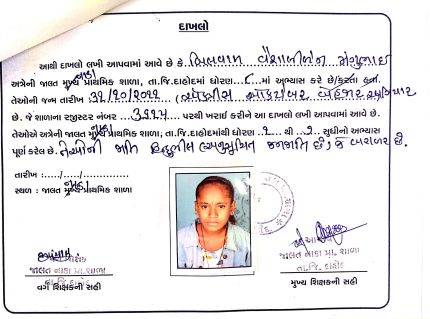 દાખલો
આથી દાખલો લખી આપવામાં આવે છે કે, બિલવાળ વૈશાલીબેન મંગુભાઇ
અત્રેની જાલત નાકા મુખ્ય પ્રાથમિક શાળા, તા.જિ.દાહોદમાં ધોરણ માં અભ્યાસ કરે છે/કરતા હતા.
તેઓની જન્મ તારીખ 31/10/2011 ઓક્ટોબર બે હજાર અગિયાર
છે. જે શાળાના રજીસ્ટર નંબર પરથી ખરાઈ કરીને આ દાખલો લખી આપવામાં આવે છે.
તેઓએ અત્રેની જાલત નાકા મુખ્ય પ્રાથમિક શાળા, તા.જિ.દાહોદમાં ધોરણ થી સુધીનો અભ્યાસ
પૂર્ણ કરેલ છે. તેઓની જાતિ હિન્દુ ભીલ (અનુસૂચિત જનજાતિ) છે, જે બરાબર છે.
તારીખ : ..../..../........
સ્થળ : જાલત નાકા મુખ્ય પ્રાથમિક શાળા
જાલત નાકા પ્રા. શાળા
તા.જિ. દાહોદ
વર્ગ શિક્ષકની સહી
આચાર્ય
જાલત નાકા પ્રા. શાળા
તા.જિ. દાહોદ
મુખ્ય શિક્ષકની સહી